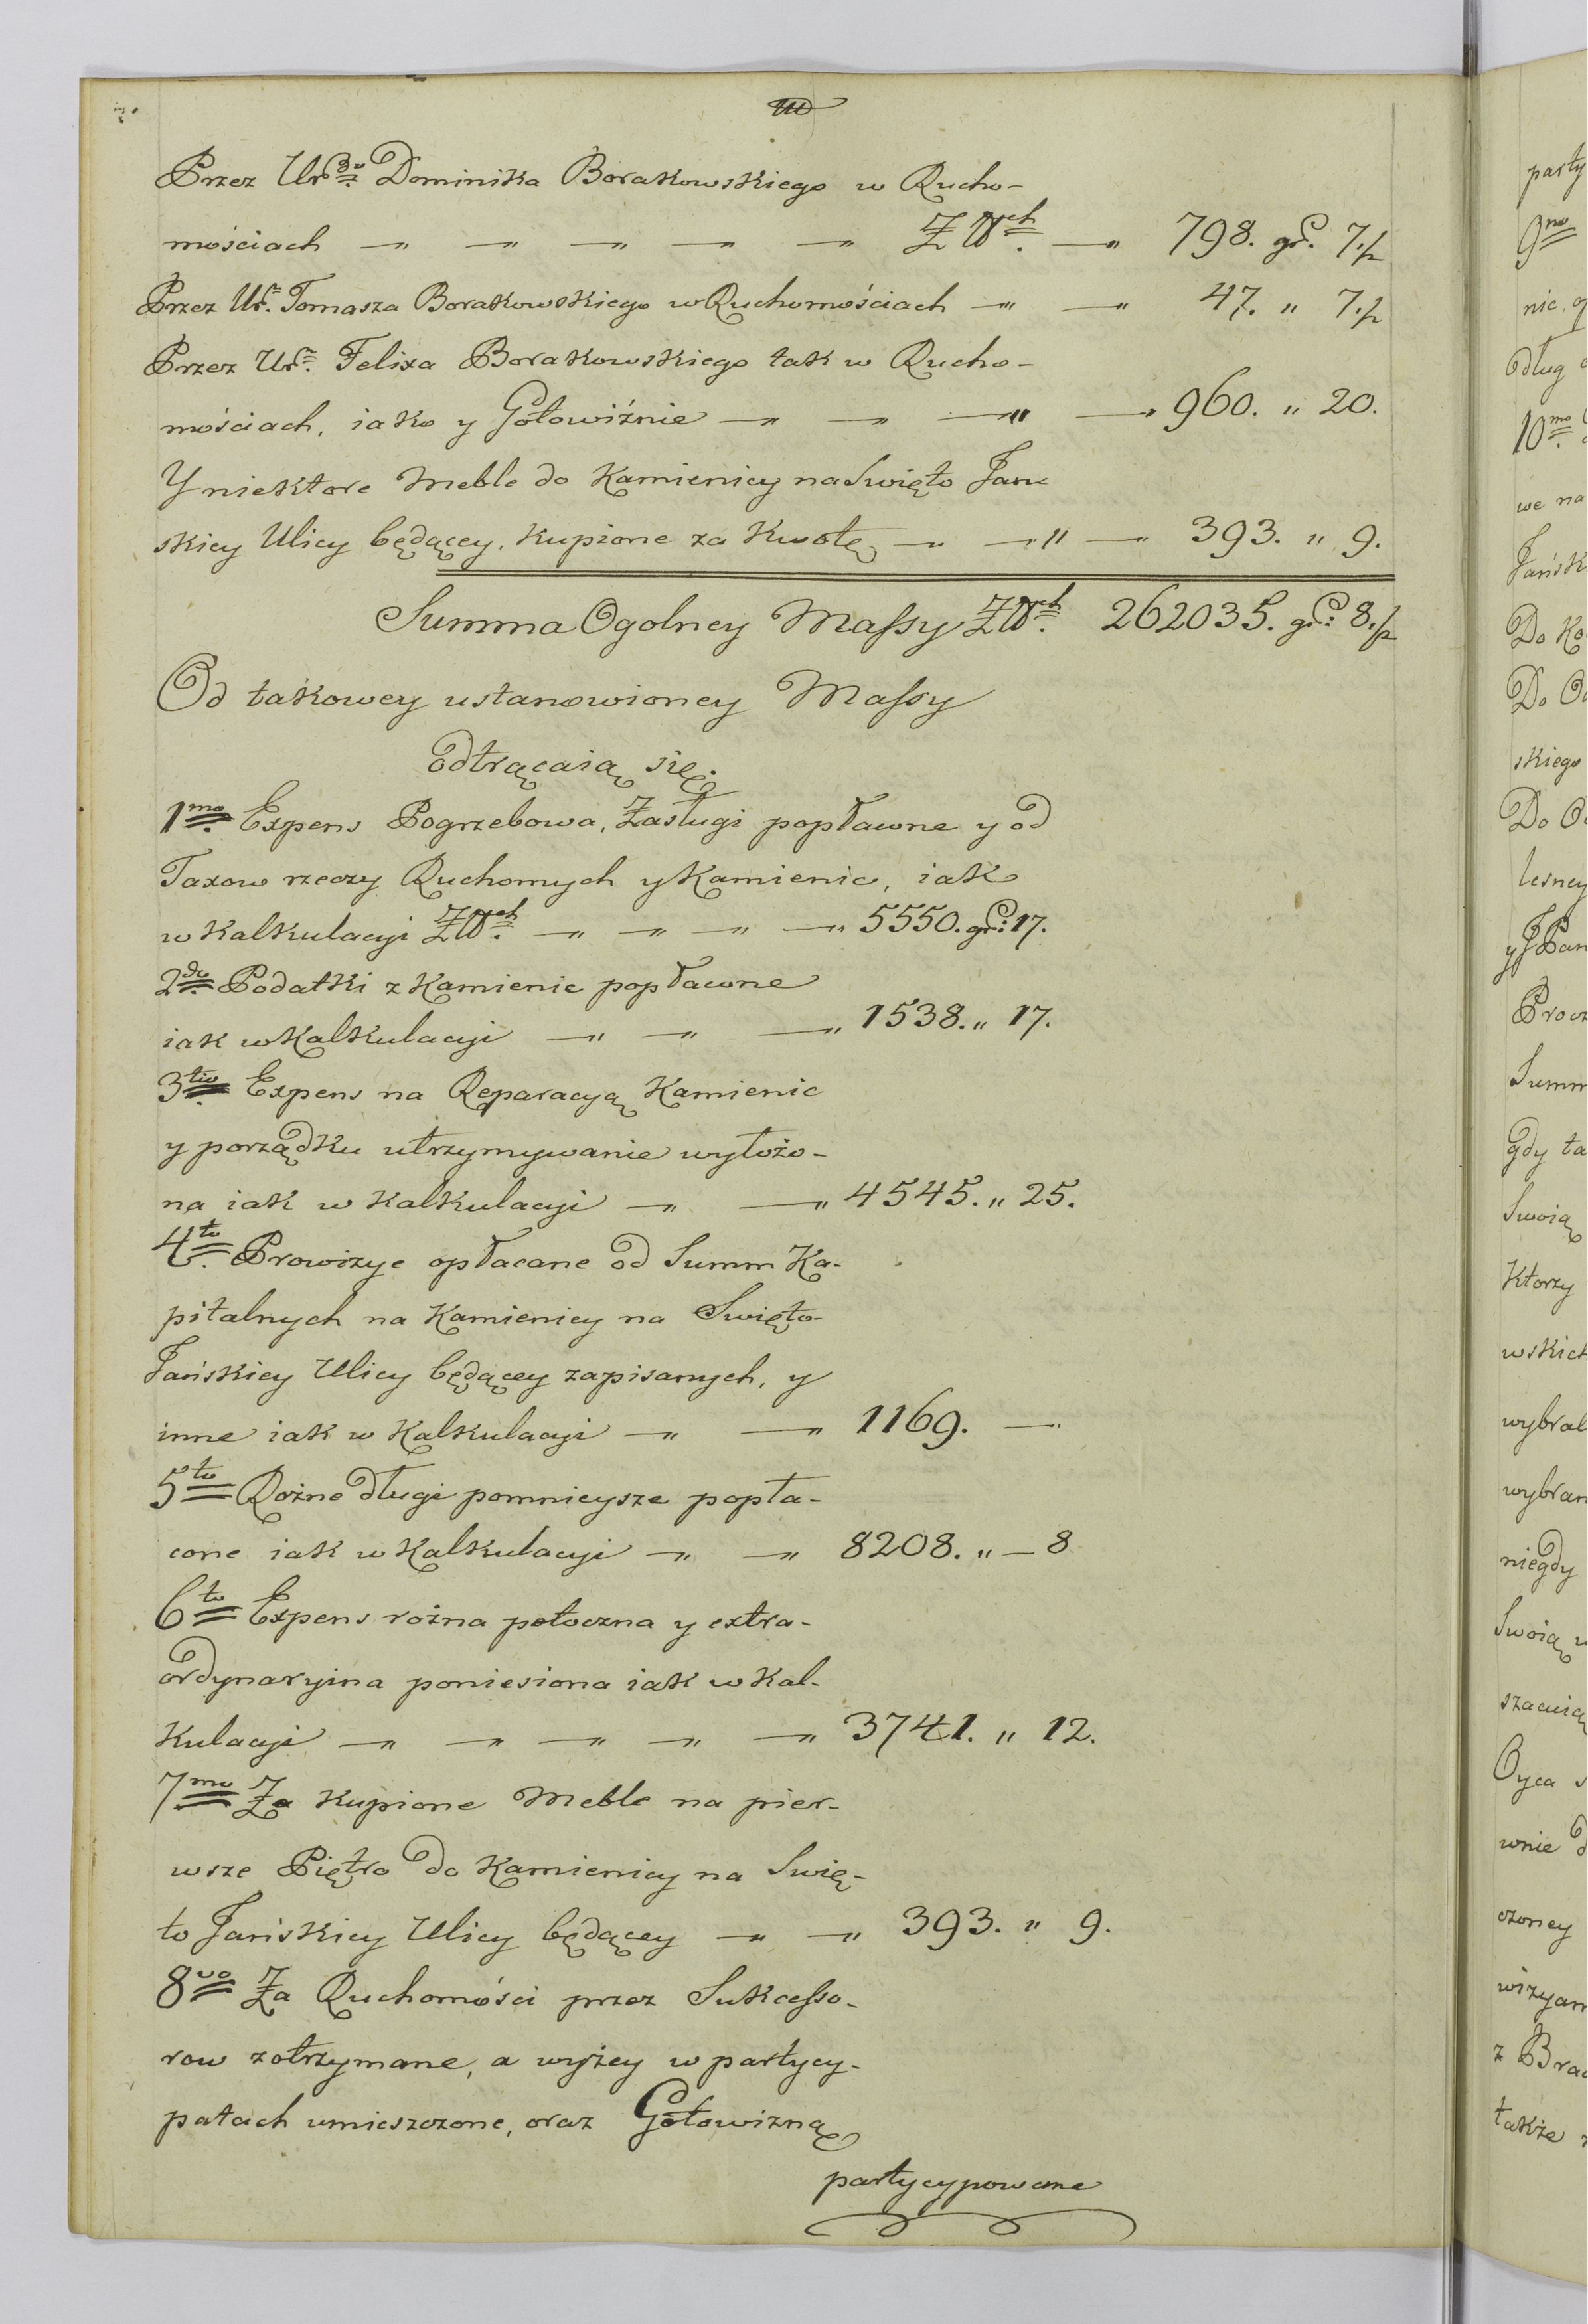 Przez Ur: Dominika Borakowskiego w Rucho-
mościach — " — " — " — " — " Złłch. — " 798. gr: 7. ½
Przez Ur: Tomasza Borakowskiego w Ruchomościach — " — " 47. " 7. ½
Przez Ur: Felixa Borakowskiego tak w Rucho-
mościach, iako y Gotowiźnie — " — " — " — " 960. " 20.
Y niektore Meble do Kamienicy na Swięto Jan
skiey Ulicy będącey, kupione za kwotę — " — " — 393. " 9.
Summa Ogolney Massy Złłch. 262035. gr: 8. ½
Od takowey ustanowioney Massy
odtrącaią się.
1mo Expens Pogrzebowa, Zasługi popłacone y od
Taxow rzeczy Ruchomych y Kamienic, iak
w kalkulacyi Złłch. — " — " — " — " 5550. gr: 17.
2do Podatki z Kamienic popłacone
iak w Kalkulacyi — " — " — " 1538. " 17.
3tio Expens na Reparacyą Kamienic
y porządku utrzymywanie wyłożo-
na iak w kalkulacyi — " — " 4545. " 25.
4to Prowizye opłacane od Summ Ka-
pitalnych na Kamienicy na Swięto-
Jańskiey Ulicy będącey zapisanych, y
inne iak w kalkulacyi — " — " 1169. —
5to Rożne długi pomnieysze popła-
cone iak w Kalkulacyi — " — " 8208. " — 8
6to Expens rożna potoczna y extra-
ordynaryina poniesiona iak w kal-
kulacyi — " — " — " — " — " 3741. " 12.
7mo Za kupione Meble na pier-
wsze Piętro do Kamienicy na Swię-
to Jańskiey Ulicy będącey — " — " 393. " 9.
8vo Za Ruchomości przez Sukcesso-
row zotrzymane, a wyżey w partycy-
patach umieszczone, oraz Gotowizną
partycypowane
party
9no
nic
Dług
10mo
we na
Jańsk
Do Ko
Do
skiego
Do
lesney
y JPan
Procz
Summ
gdy ta
Swoią
ktorzy
wskich
wybral
wybran
niegdy
Swoią
szacuią
Oyca
wnie
czoney
wizyam
z Brac
także